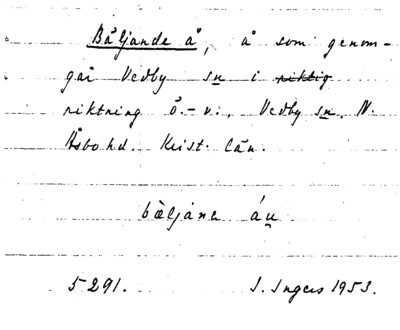 Båljande å, å som genom-
går Vedby sn i riktig
riktning ö.-v., Vedby sn. N.
Åsbo hd. Krist. län.
bœljane áu
5291. I. Ingers 1953.